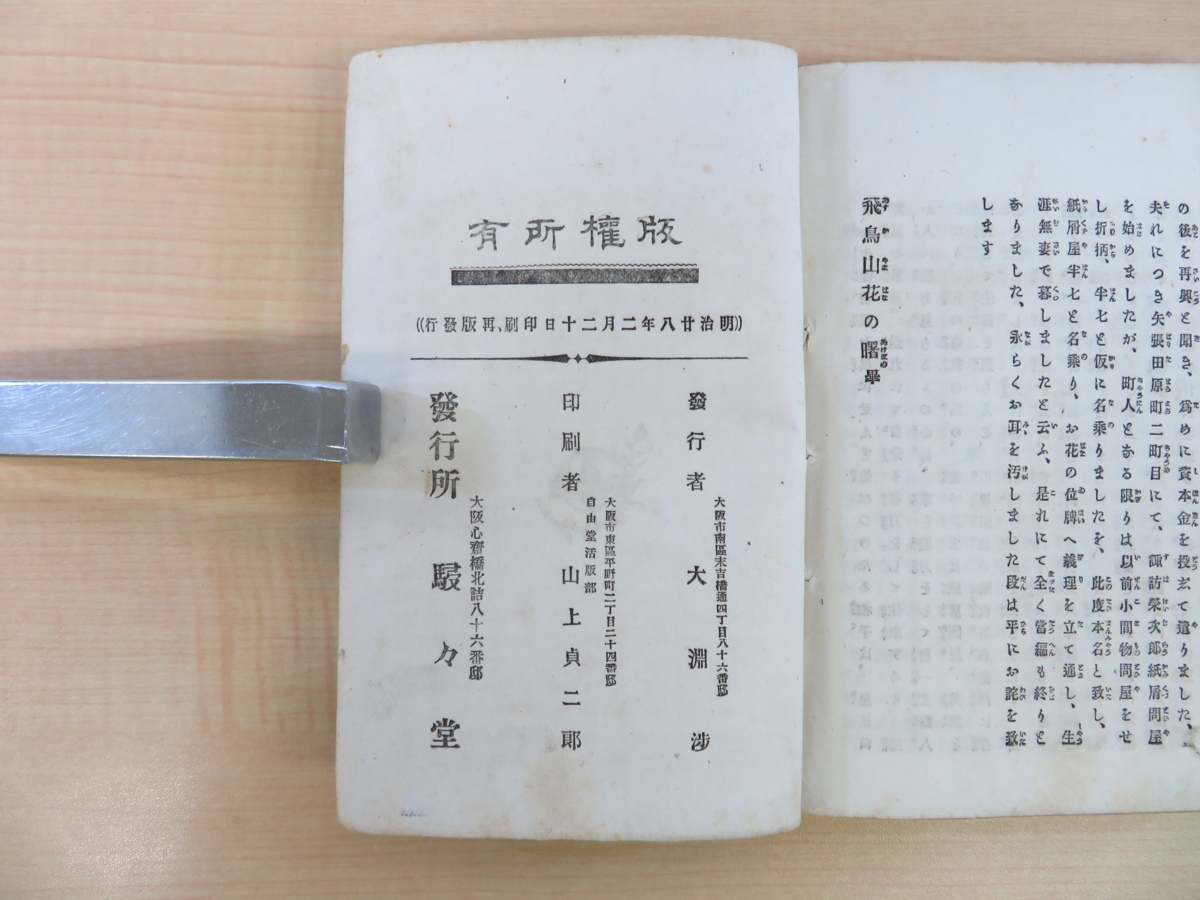 の後を再興と開き、爲めに資本金を投玄て遣りました、
夫れにつき矢張田原町二町目にて、諏訪榮次郎紙屑問屋
を始めましたが、町人となる限りは以前小間物問屋をせ
し折柄、半七と仮に名乘りましたを、此度本名と致し、
紙屑屋半七と名乘り、お花の位牌へ義理を立て通し、生
涯無妻で暮しましたと云ふ、是れにて全く當編も終りと
なりました、永らくお耳を汚しました段は平にお詫を致
します
飛鳥山花の曙畢
版權所有
((明治廿八年二月二十日印刷、再版發行))
發行者
大阪市南區末吉橋通四丁目八十六番邸
大淵渉
印刷者
大阪市東區平野町二丁目二十四番邸
自由堂活版部
山上貞二郎
大阪心齋橋北詰八十六番邸
發行所 駸々堂